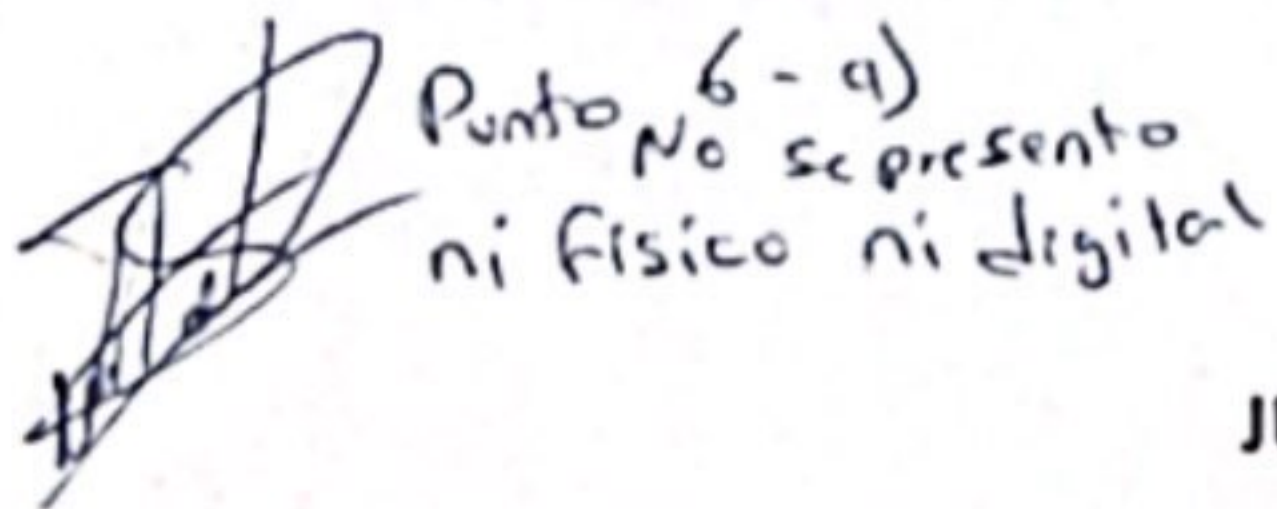 Punto 6 - a)
No se presento
ni físico ni digital